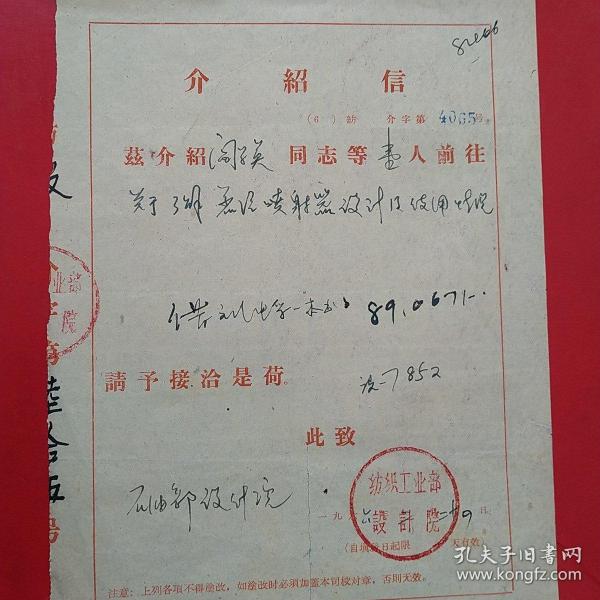 介紹信
(6)紡 介字第4065号
茲介紹阎 英同志等壹人前往
关于了解蒸汽喷射器设计及使用情况
89.0671
請予接洽是荷。
设-7852
此致
石油部设计院
纺织工业部
設計院
一九六 日
(自填發日起限 天有效)
注意:上列各項不得塗改,如塗改时必須加蓋本司校对章,否則无效。
业部
院
字第
陸拾伍
号
孔夫子旧书网
www.kongfz.com